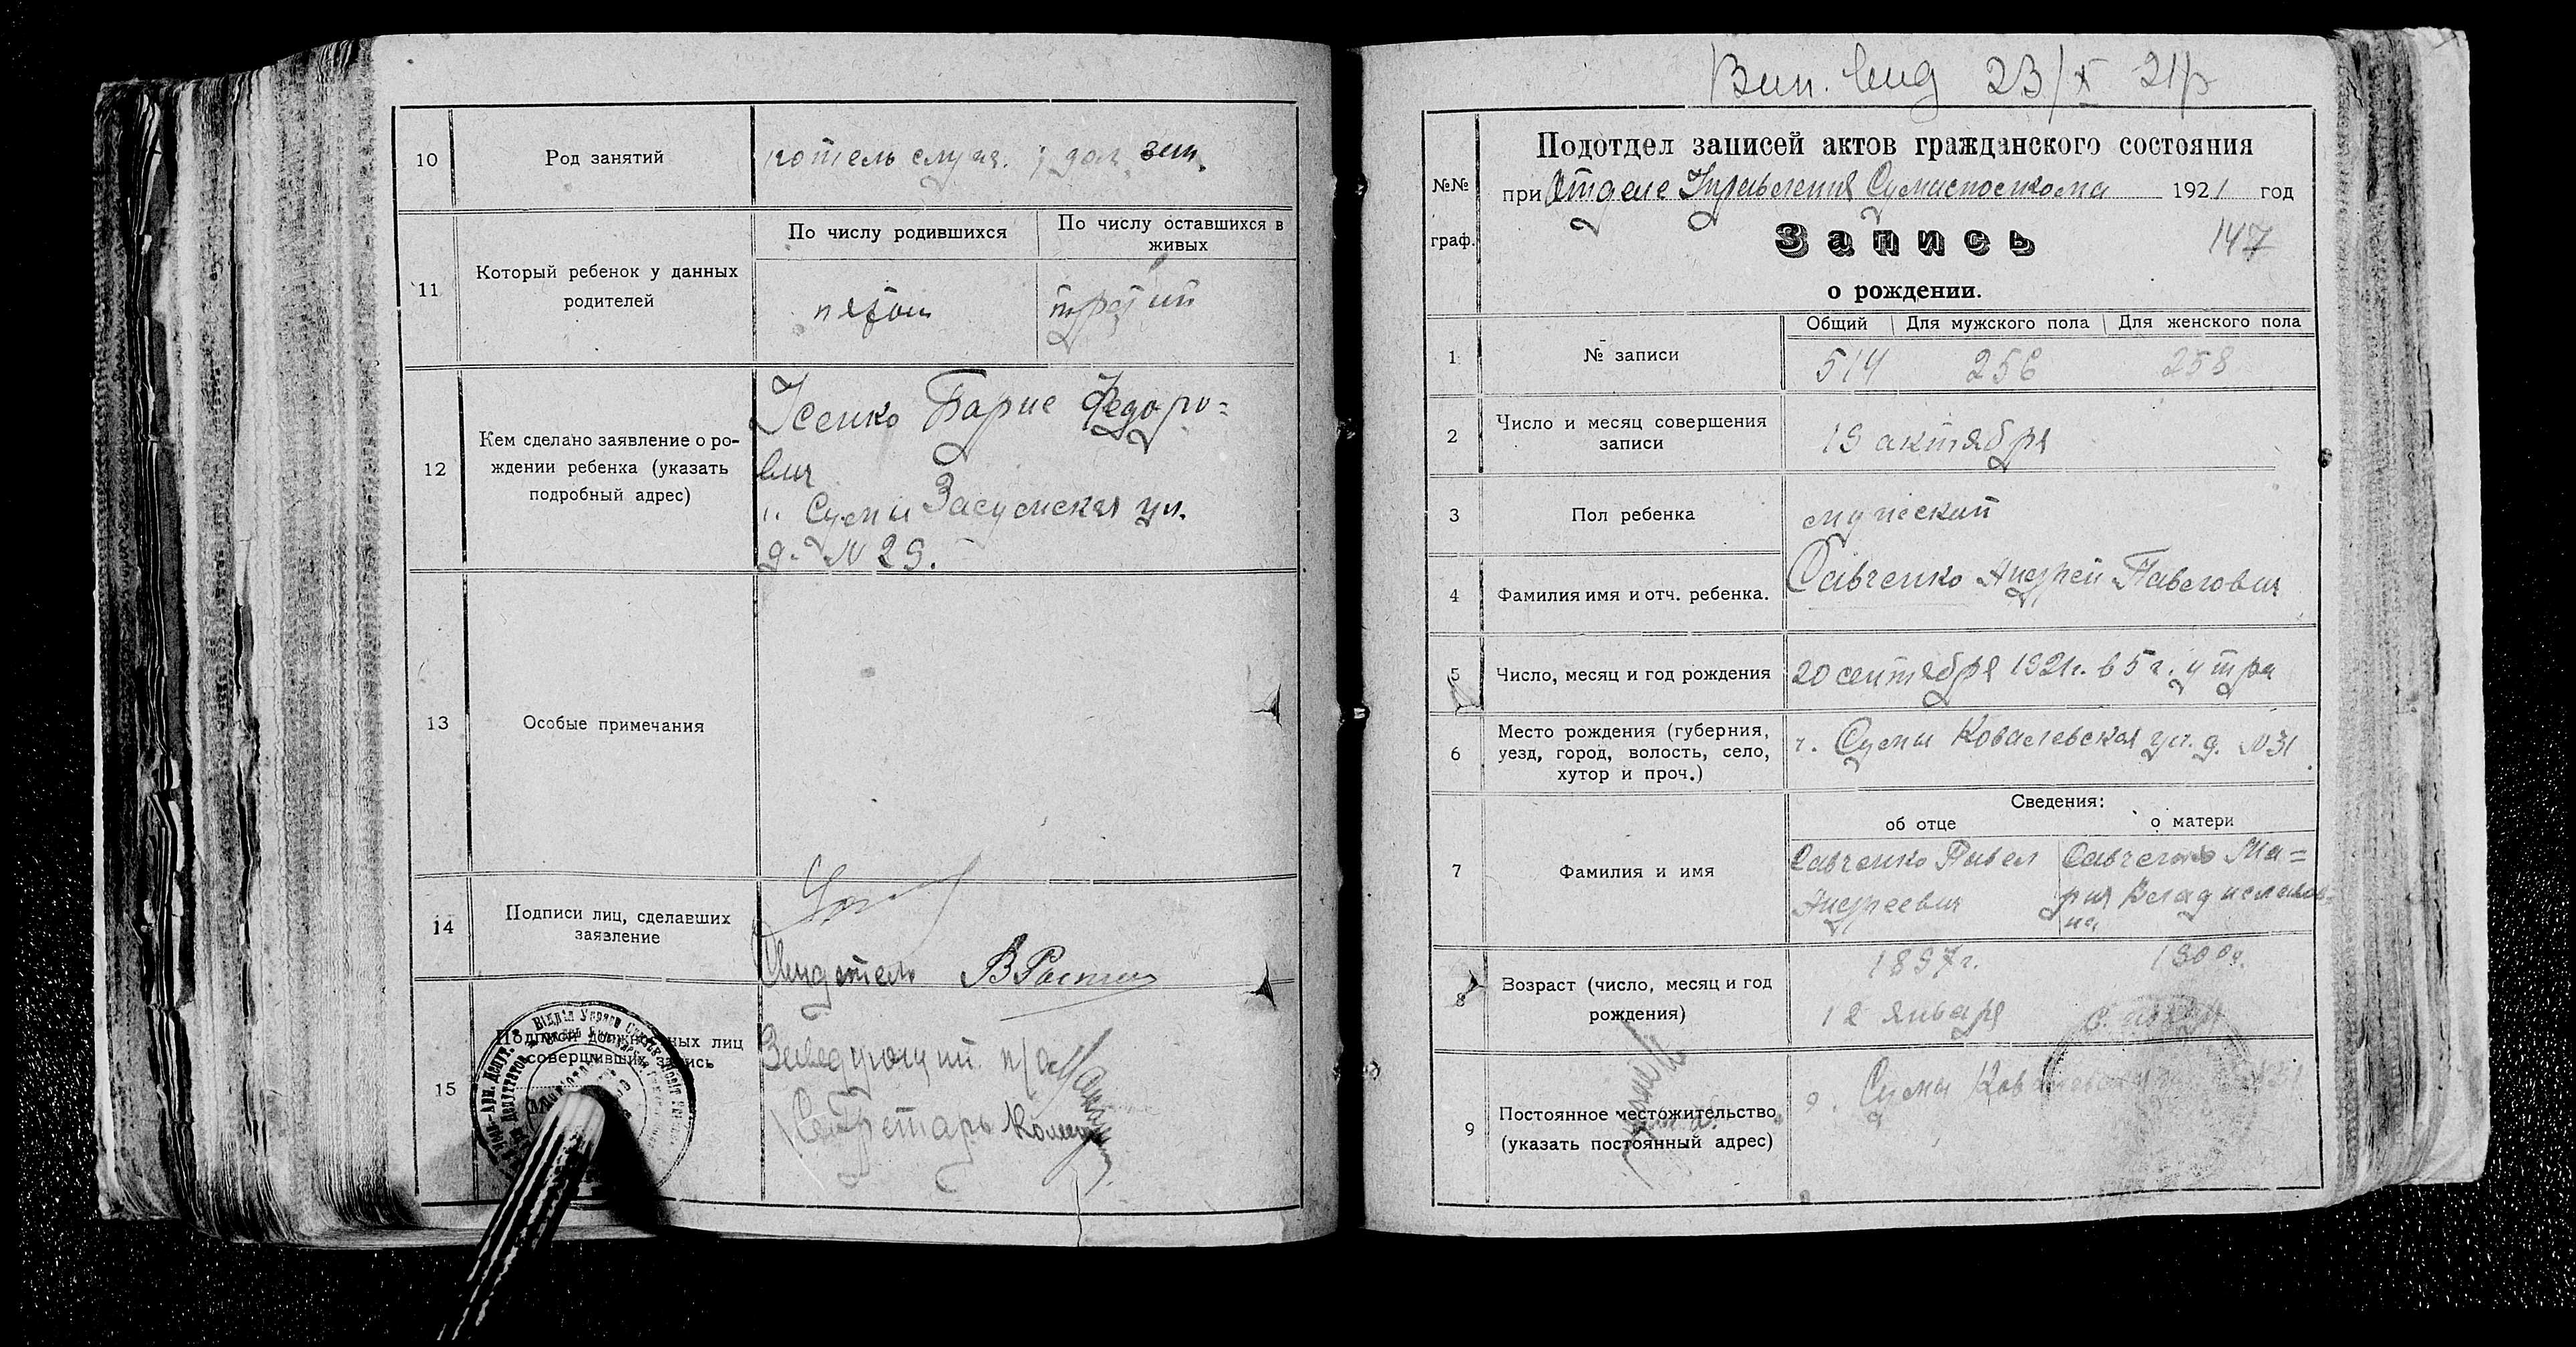 10
Род занятий
зем.
11
Который ребенок у данных
родителей
По числу родившихся
По числу оставшихся в
живых
пятый
третий
12
Кем сделано заявление о ро-
ждении ребенка (указать
подробный адрес)
Усенко Барис Федоро=
вич
г. Сумы Засумская ул.
д. N 29.
13
Особые примечания
14
Подписи лиц, сделавших
заявление
Свидетель
15
Подписи должностных лиц
совершивших запись
Заведующий п/о
Секретарь
Вип. вид 23/X 21р
№№
граф.
Подотдел записей актов гражданского состояния
при Отделе Управления 1921 год
Запись
147
о рождении.
1
№ записи
Общий
Для мужского пола
Для женского пола
514
256
258
2
Число и месяц совершения
записи
19 актября
3
Пол ребенка
мужской
4
Фамилия имя и отч. ребенка.
Савченко Андрей Павлович
5
Число, месяц и год рождения
20 сентября 1921г. в 5 ч. утра
6
Место рождения (губерния,
уезд, город, волость, село,
хутор и проч.)
г. Сумы Ковалевская ул. д. N31
Сведения:
об отце
о матери
7
Фамилия и имя
Савченко Павел
Андреевич
Савченко Ма=
рия Владиславов=
на
8
Возраст (число, месяц и год
рождения)
1897г.
12 января
1900г.
9
Постоянное местожительство
(указать постоянный адрес)
г. Сумы